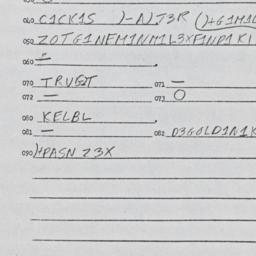 040 C1CK1S )-A)J3R ()+G1M1L
050 ZOTG1NFM1NM1L3XF1ND1K1
060 –
070 TRUGT 071 –
072 – 073 O
080 KELBL
081 – 082 D3GOLD1N1K
090 )+PASN Z3X